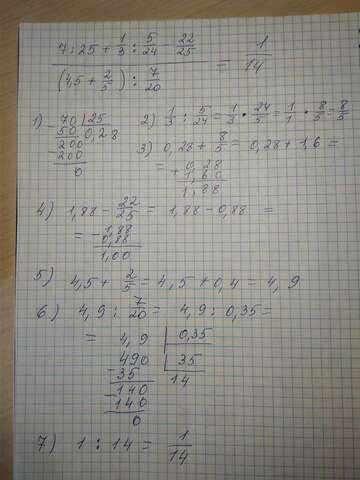 7 : 25 + 1/3 : 5/24 - 22/25
(4,5 + 2/5) : 7/20 = 1/14
1) 70 | 25
- 50 0,28
200
- 200
0
2) 1/3 : 5/24 = 1/3 · 24/5 = 1/1 · 8/5 = 8/5
3) 0,28 + 8/5 = 0,28 + 1,6 =
= + 0,28
1,60
1,88
4) 1,88 - 22/25 = 1,88 - 0,88 =
= - 1,88
0,88
1,00
5) 4,5 + 2/5 = 4,5 + 0,4 = 4,9
6) 4,9 : 7/20 = 4,9 : 0,35 =
= 4,9 | 0,35
490 | 35
- 35 14
140
- 140
0
7) 1 : 14 = 1/14